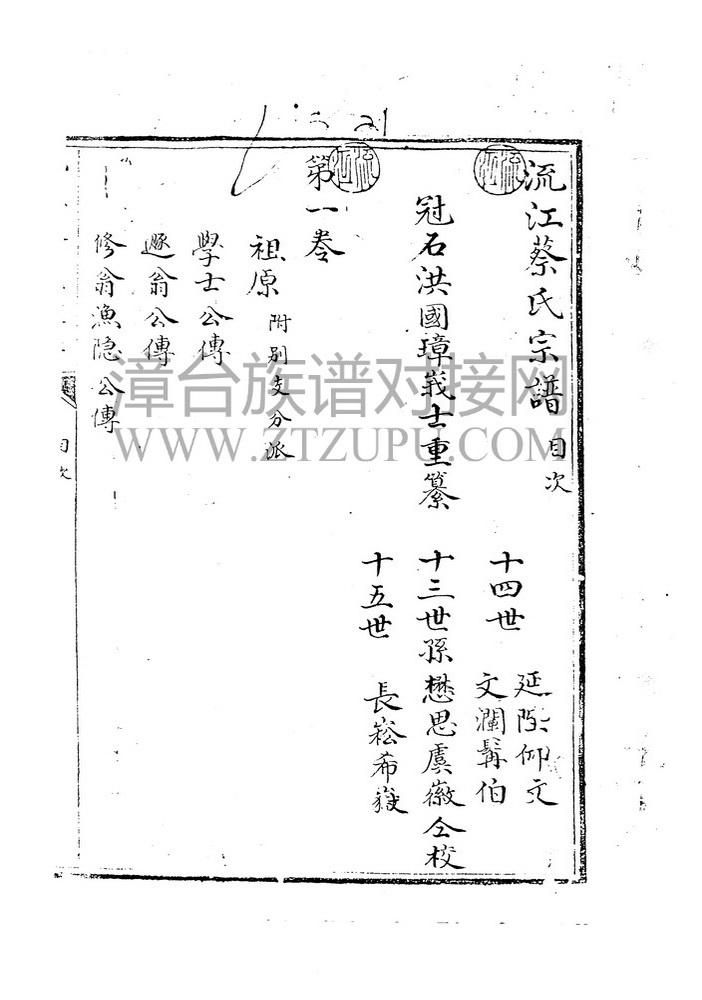 流江蔡氏宗譜 目次
冠石洪國璋義士重纂
十四世 延陛仰文
文瀾髯伯
十三世孫懋思虞徽仝校
十五世 長崧希嶽
第一卷
祖原 附别支分派
學士公傳
遯翁公傳
修翁漁隐公傳
目次
漳台族谱对接网
WWW.ZTZUPU.COM